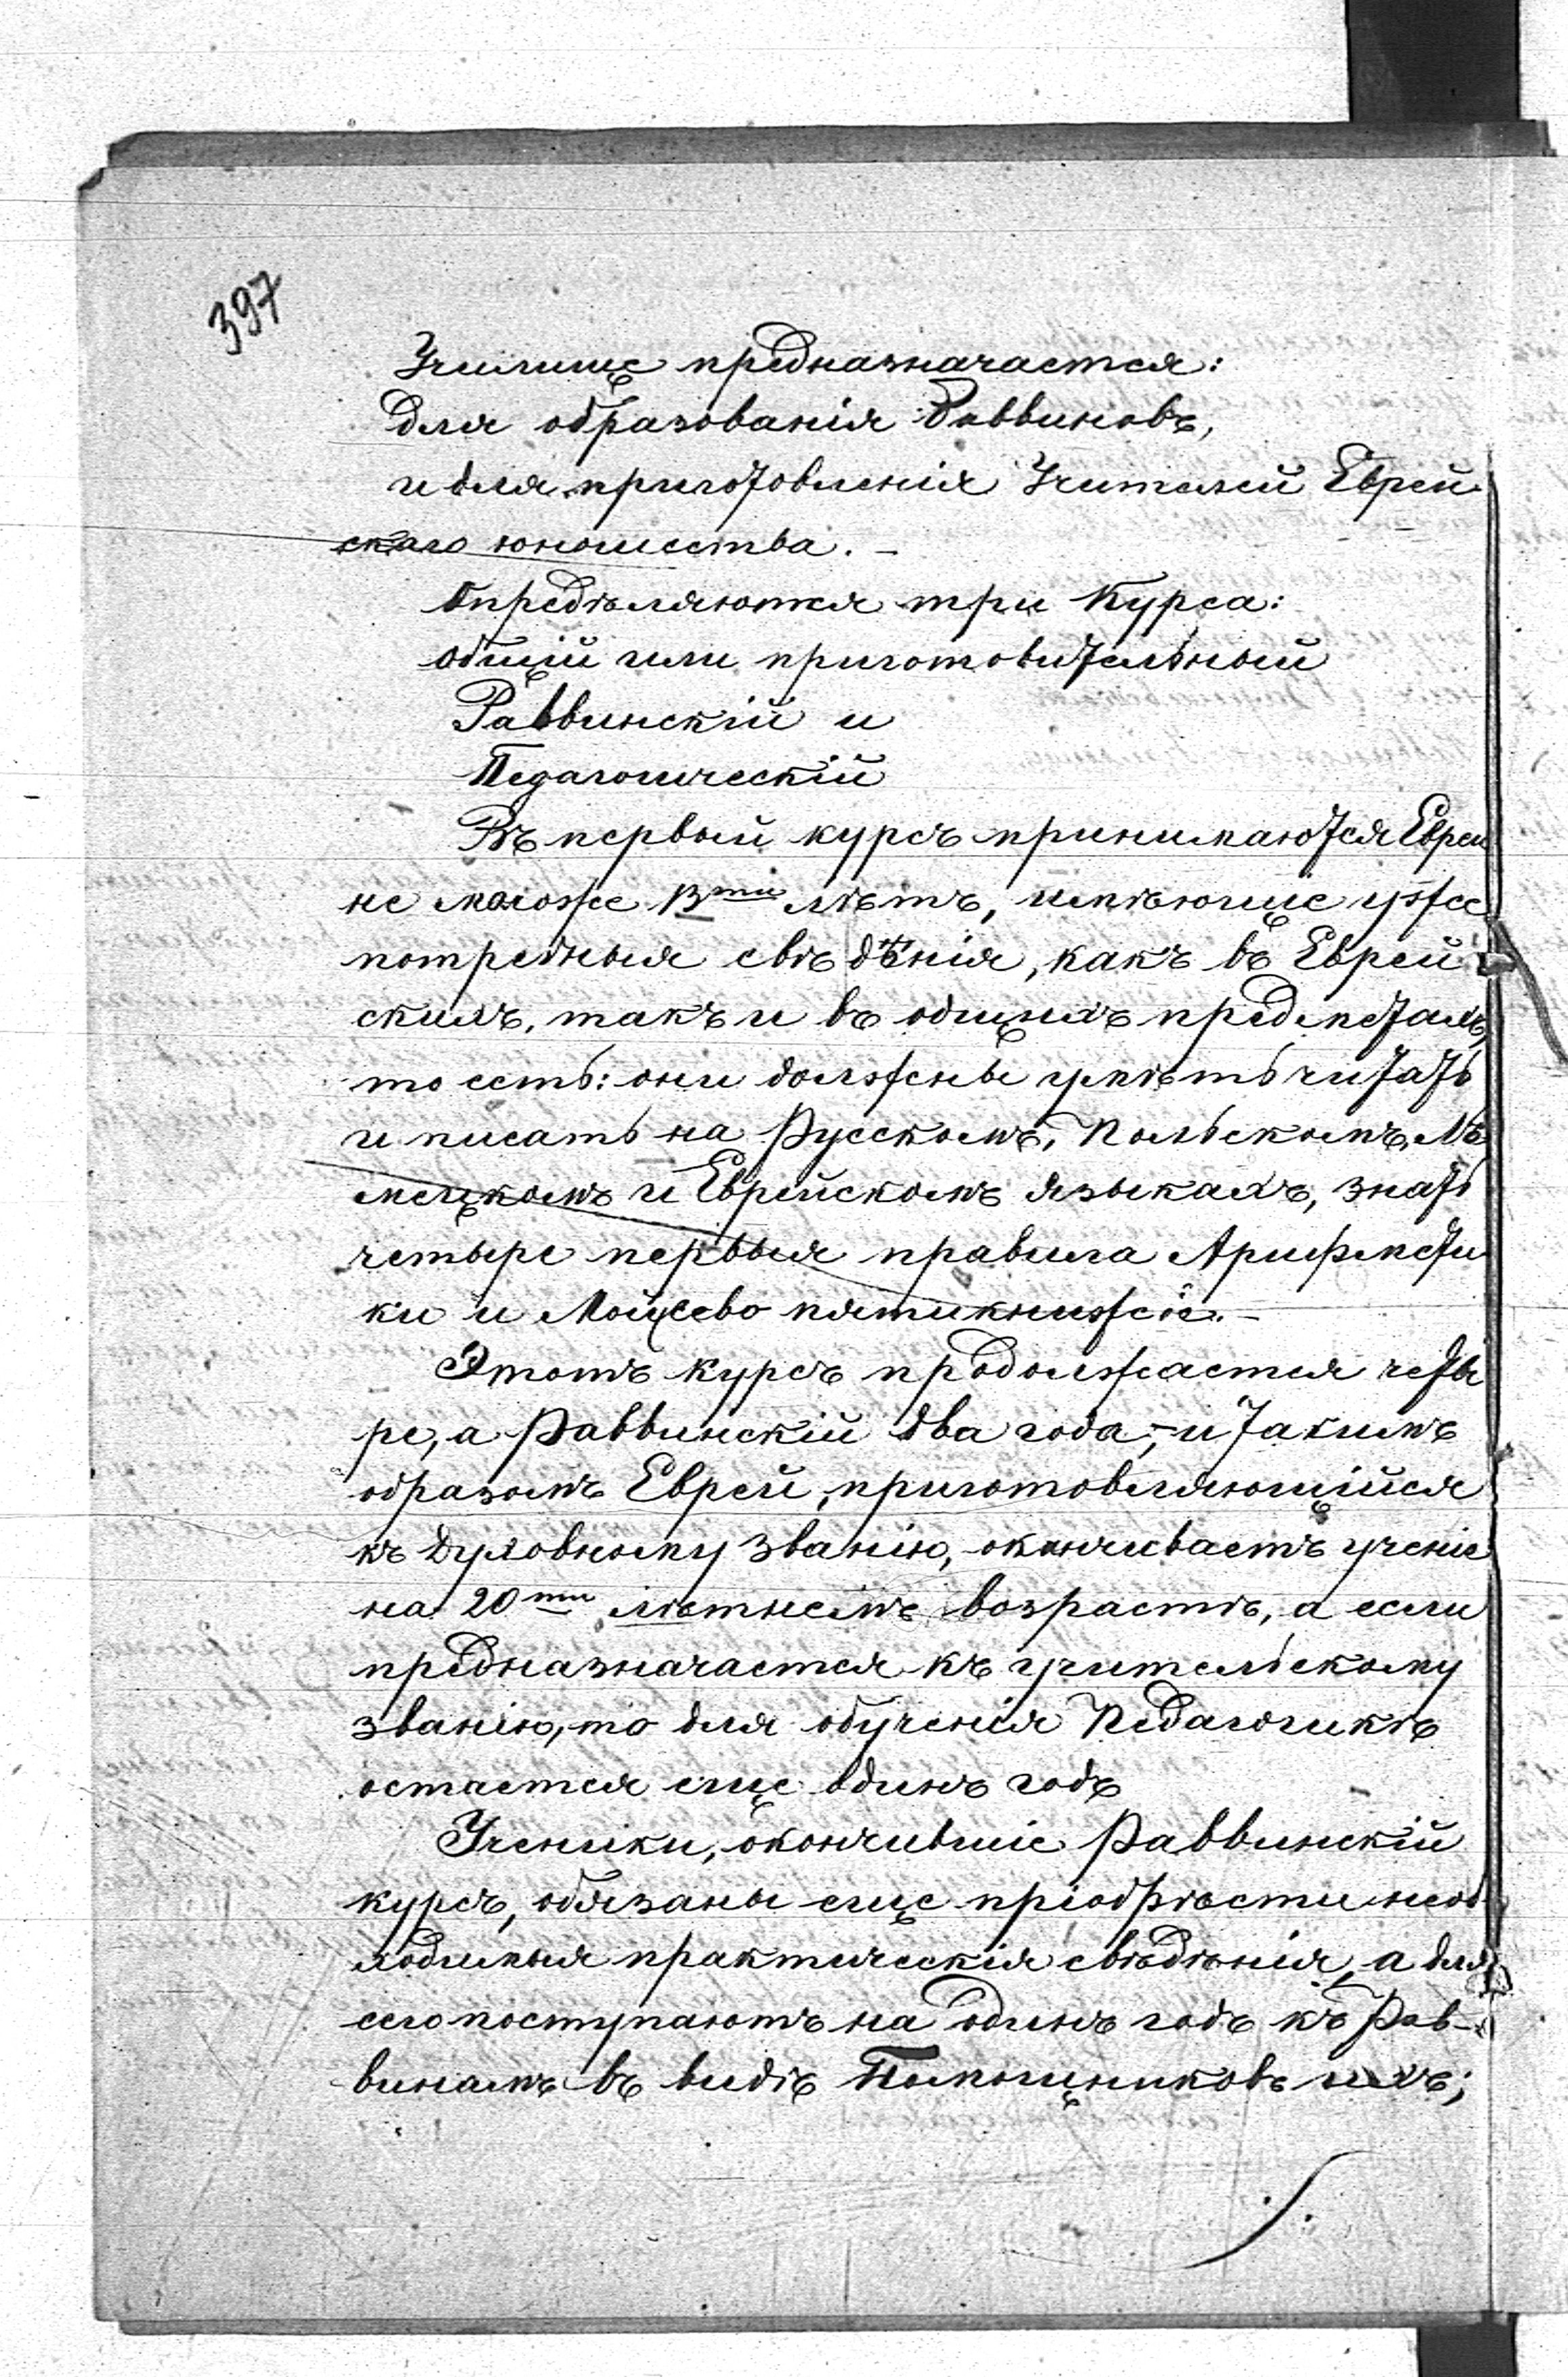 397
Училище предназначается:
для образованія Раввиновъ,
и для приготовленія Учителей Еврей
скаго юношества. –
Опредѣляются три Курса:
общій или приготовительный
Раввинскій и
Педагогическій
Въ первый курсъ принимаются Евреи
не моложе 13ти лѣтъ, имѣющіе уже
потребныя свѣдѣнія, какъ въ Еврей
скихъ, такъ и въ общихъ предметахъ,
то есть: они должны умѣть читать
и писать на Русскомъ, Польскомъ, Нѣ
мецкомъ и Еврейскомъ языкахъ, знать
четыре первыя правила Арифмети
ки и Моѵсеево пятикнижіе. –
Этотъ курсъ продолжается четы
ре, а Раввинскій два года; – и такимъ
образомъ Еврей, приготовляющійся
къ Духовному званію, оканчиваетъ ученіе
на 20ти лѣтнемъ возрастѣ, а если
предназначается къ учительскому
званію, то для обученія Педагогикѣ
остается еще одинъ годъ
Ученики, окончившіе Раввинскій
курсъ, обязаны еще пріобрѣсти необ
ходимыя практическія свѣдѣнія, а для
сего поступаютъ на одинъ годъ къ Рав-
винамъ въ видѣ Помощниковъ ихъ;